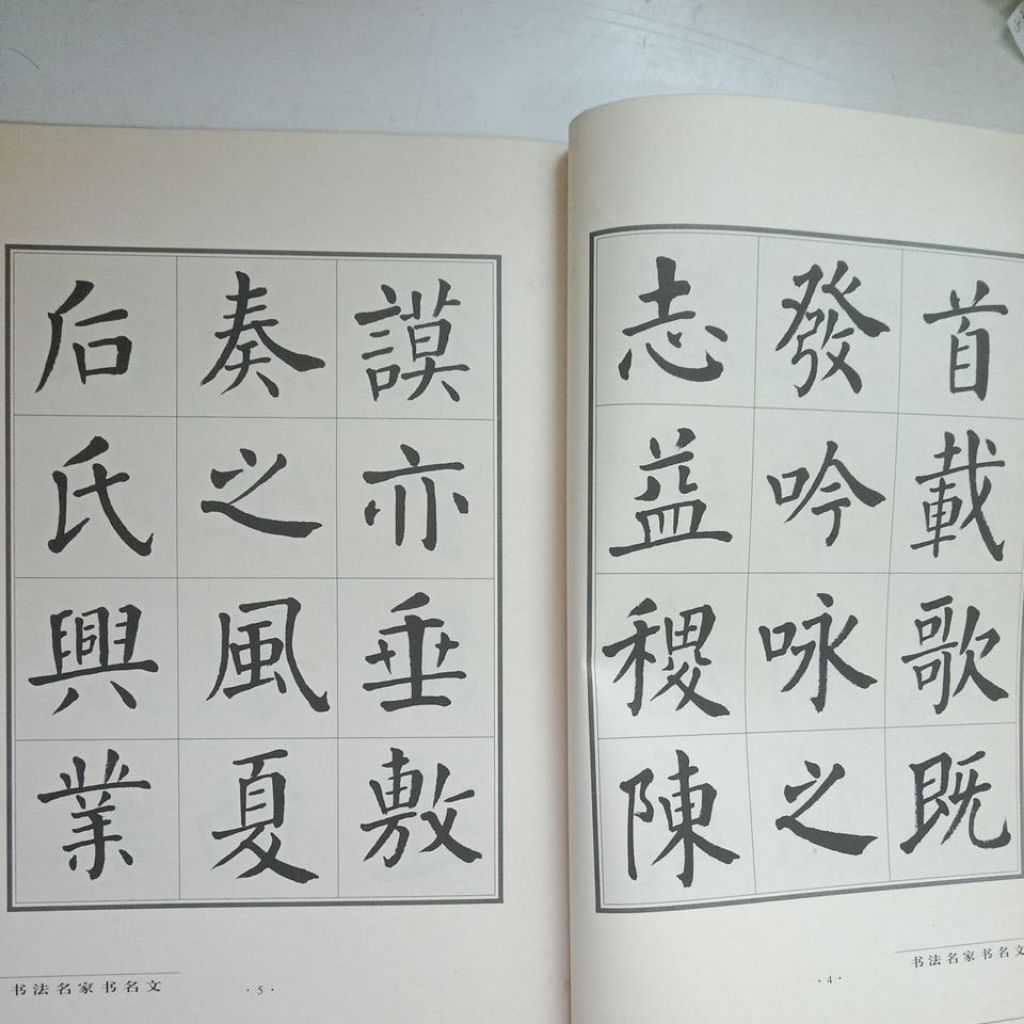 首載歌既
發吟咏之
志益稷陳
书法名家书名文
·4·
謨亦垂敷
奏之風夏
后氏興業
书法名家书名文
·5·